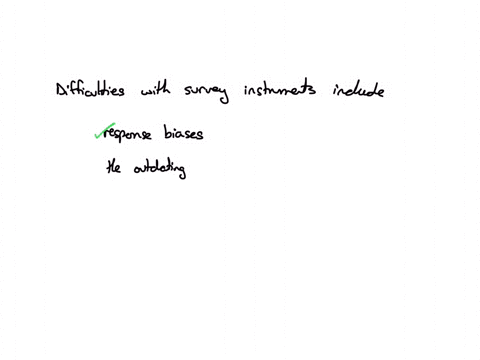 Difficulties with survey instruments include
response biases
the outdating